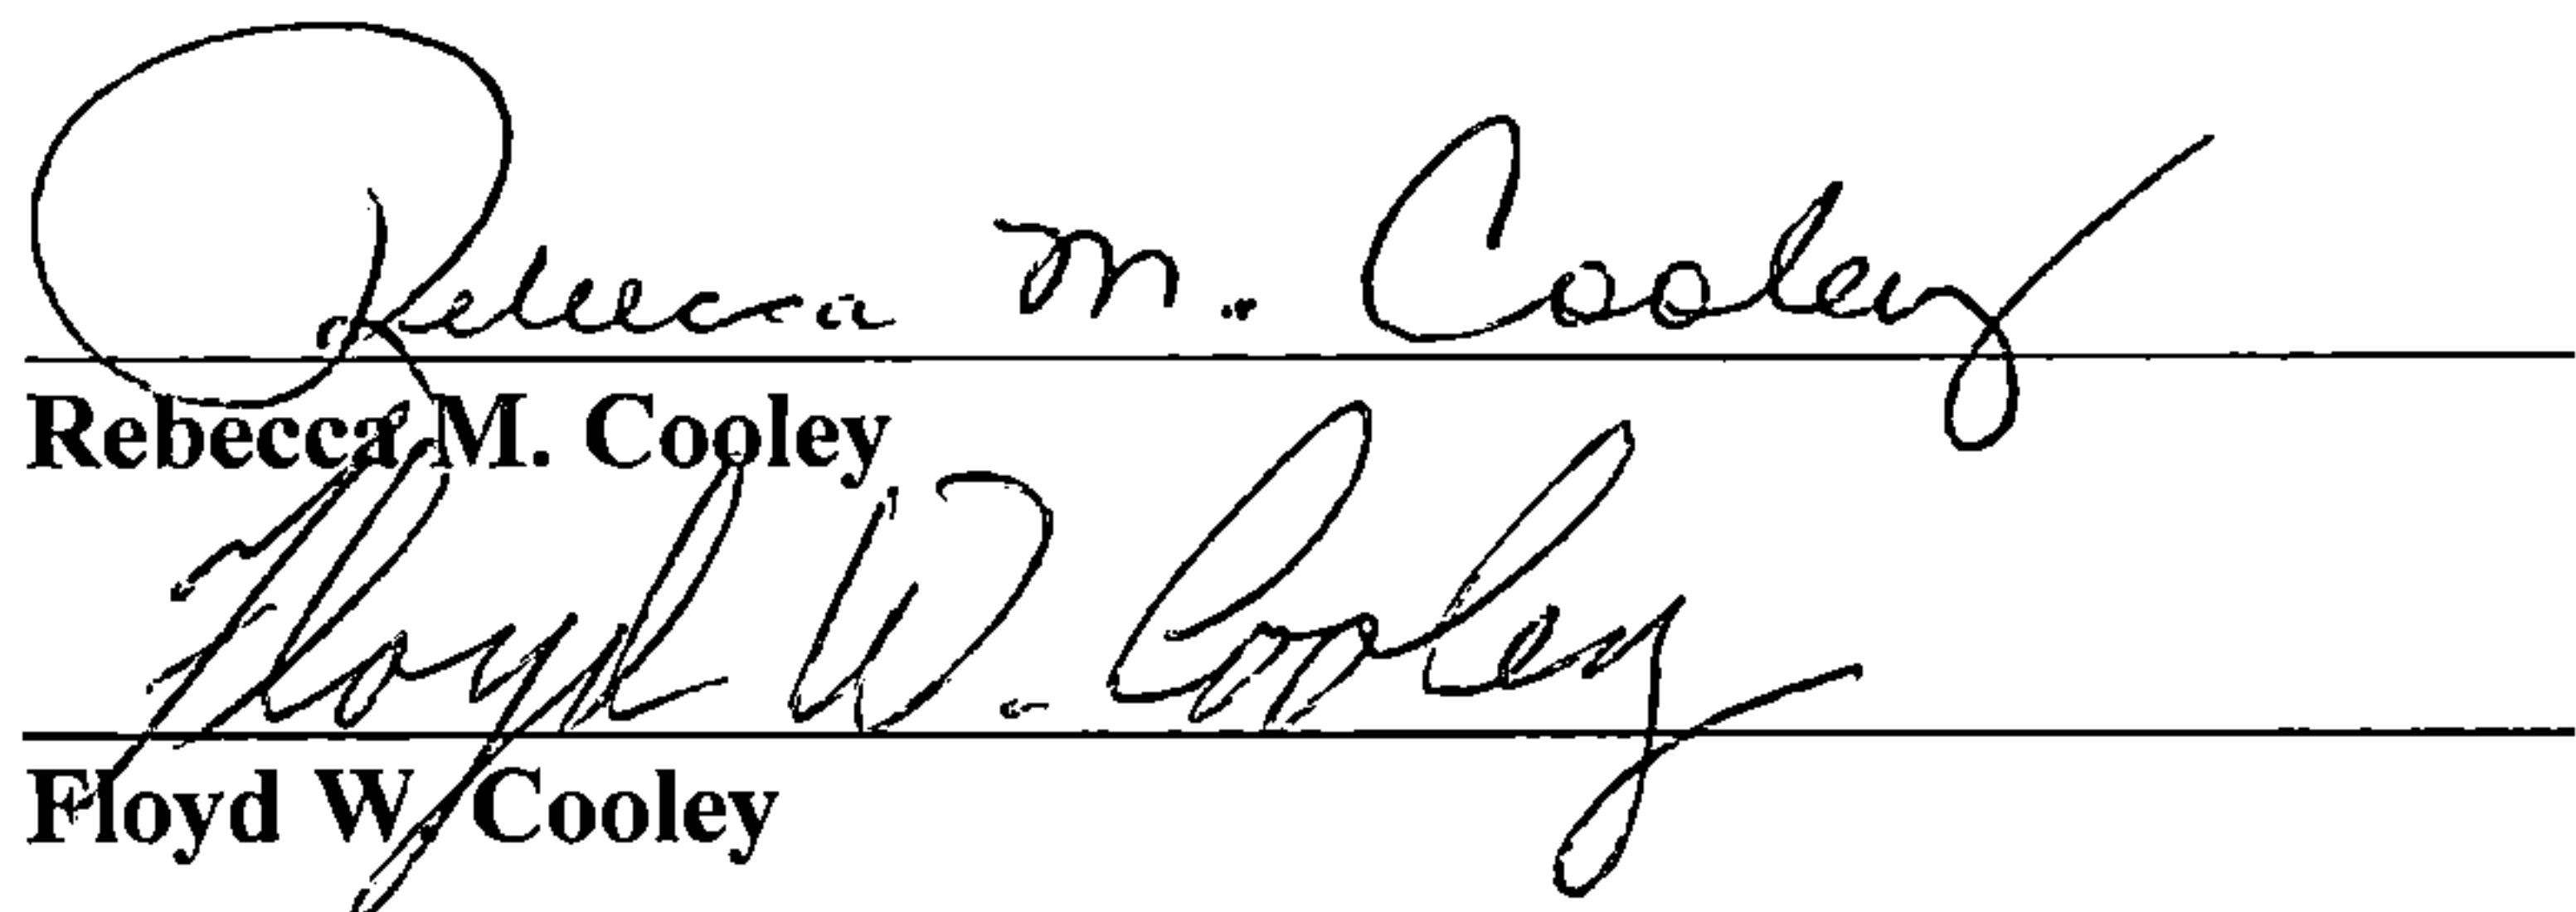 Rebecca M. Cooley
Rebecca M. Cooley
Floyd W. Cooley
Floyd W. Cooley